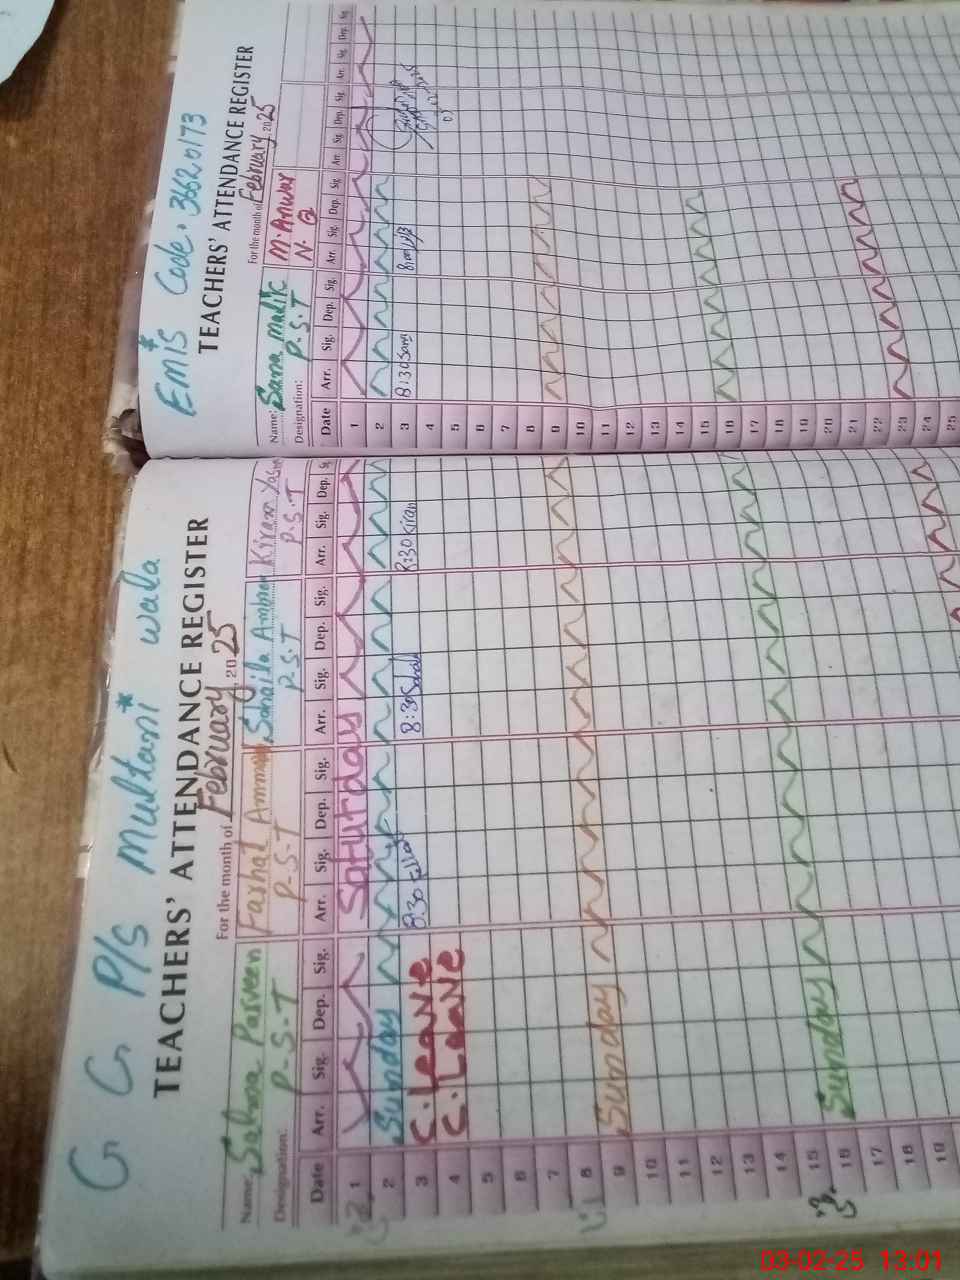 G G P/S Multani* wala
TEACHERS' ATTENDANCE REGISTER
For the month of February, 2025
Name: Salma Parveen Farhat Ammar Sohaila Ambre Kiran Yasm
Designation: P.S.T P.S.T P.S.T P.S.T
Date Arr. Sig. Dep. Sig. Arr. Sig. Dep. Sig. Arr. Sig. Dep. Sig. Arr. Sig. Dep.
1 Saturday
2 Sunday
3 C.Leave 8:30 8:30 8:30 Kiran
4 C.Leave
5
6
7
8
9 Sunday
10
11
12
13
14
15
16 Sunday
17
18
19
Emis* Code. 36620173
TEACHERS' ATTENDANCE REGISTER
For the month of February, 2025
Name: Sana Malic M.Anwar
Designation: P.S.T N.Q
Date Arr. Sig. Dep. Sig. Arr. Sig. Dep. Sig. Arr. Sig. Dep. Sig. Arr. Sig. Dep. Sig.
1
2
3 8:30 Sana
4
5
6
7
8
9
10
11
12
13
14
15
16
17
18
19
20
21
22
23
24
25
03-02-25 13:01